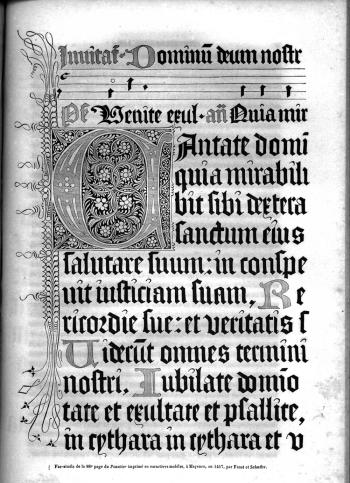 Invitat. Dominū deum nostr
Ps Venite exul. añ Quia mir
Cantate domi
quia mirabili
bit sibi dextera
sanctum eius
salutare suum: in conspe
uit iusticiam suam, Re
ricordie sue: et veritatis s
Viderūt omnes termini
nostri. Iubilate domīo
tate et exultate et psallite,
in cythara in cythara et v
Fac-simile de la 86e page du Psautier imprimé en caractères mobiles, à Mayence, en 1457, par Faust et Schoeffer.